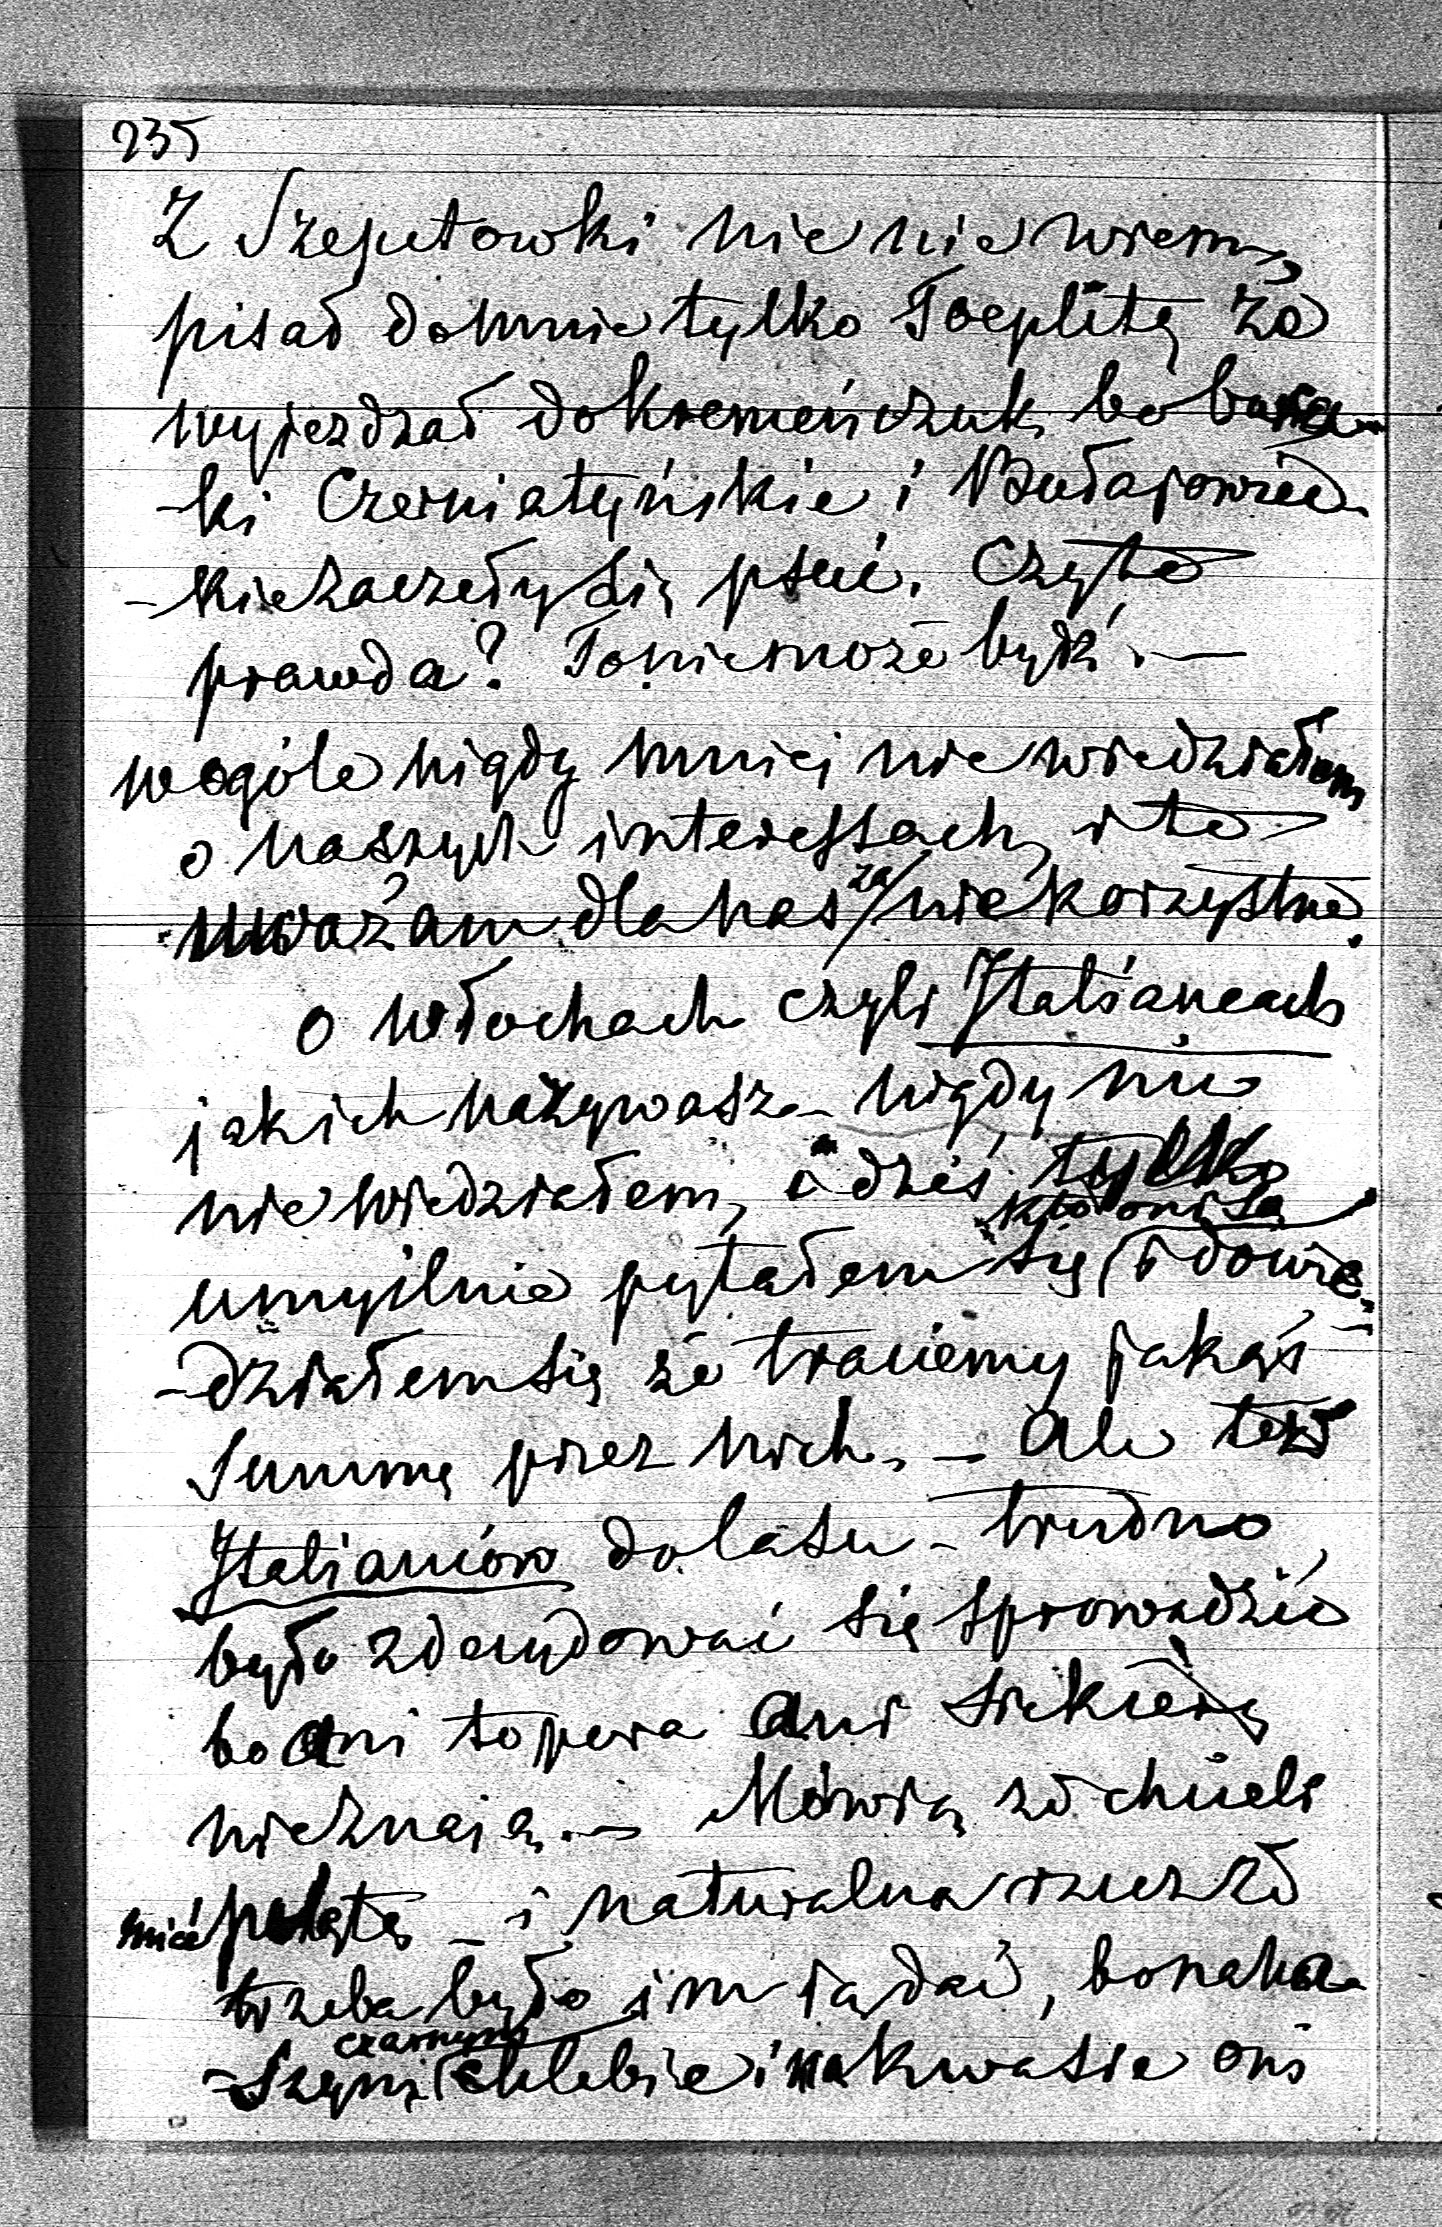 235
Z Szepetowki nic nie wiem,
pisał do mnie tylko Toeplitz że
wyjezdzał do Kremeńczuk, bo bura-
-ki Czerniatyńskie i Bułajowiec-
-kie zaczeły się psuć. Czy to
prawda? To nie może być. —
wogóle nigdy mniej nie wiedziałem
o naszych interessach, i to
uważam dla nas za niekorzystne.
O włochach czyli Italiancach
jak ich nazywasz – nigdy nic
nie wiedziałem, i dziś tylko
umyślnie pytałem się kto oni są i dowie-
-działem się że traciemy jakąś
Summę przez nich. – Ale też
Italianców do lasu – trudno
było zdecydować się sprowadzić
bo ani topora ani siekierą
nie znają. – Mówią że chcieli
mieć polętę – i naturalna rzecz że
trzeba było im żądać, bo na na-
-szym czarnym chlebie i na kwasie oni